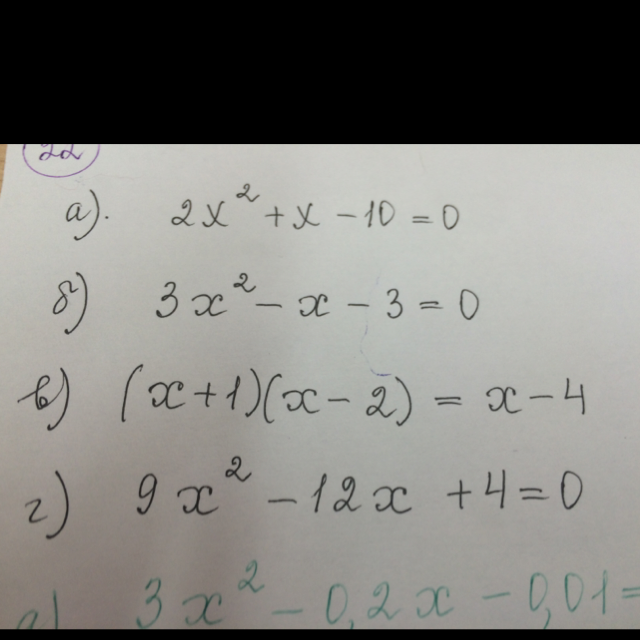 22
а). 2x² + x - 10 = 0
б) 3x² - x - 3 = 0
в) (x+1)(x-2) = x-4
г) 9x² - 12x + 4 = 0
3x² - 0,2x - 0,01 =